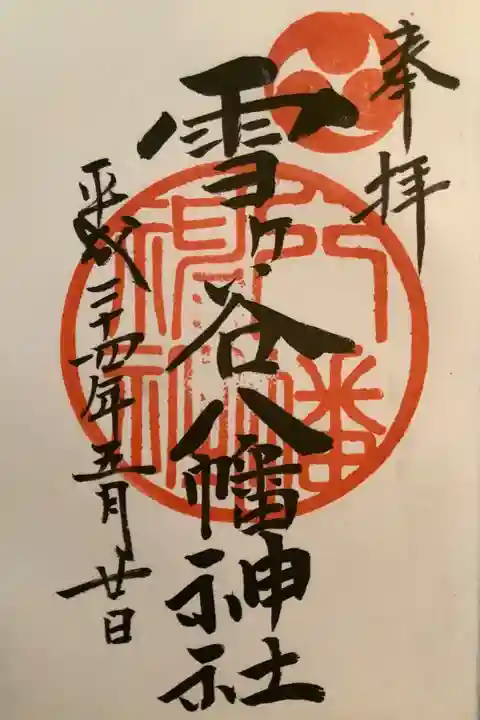 奉拝
雪ヶ谷八幡神社
平成二十四年五月廿日
八幡
神社